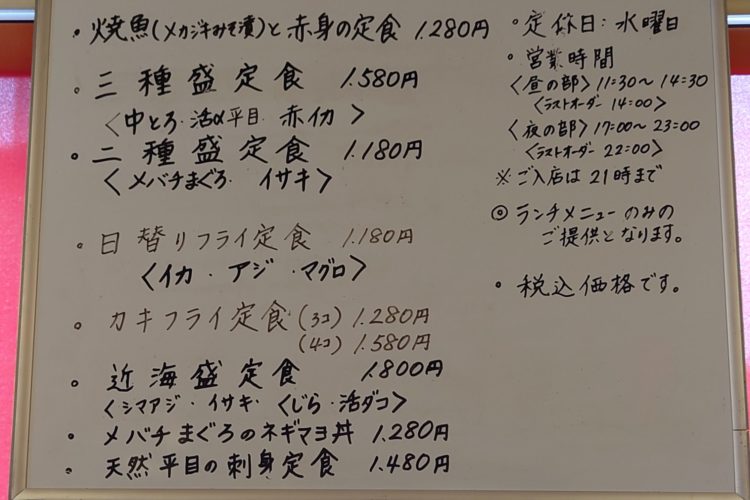 ・焼魚(メカジキみそ漬)と赤身の定食 1.280円
・三種盛定食 1.580円
〈中とろ・活〆平目・赤イカ〉
・二種盛定食 1.180円
〈メバチまぐろ・イサキ〉
・日替りフライ定食 1.180円
〈イカ・アジ・マグロ〉
・カキフライ定食(3コ) 1.280円
(4コ) 1.580円
・近海盛定食 1.800円
〈シマアジ・イサキ・くじら・活ダコ〉
・メバチまぐろのネギマヨ丼 1.280円
・天然平目の刺身定食 1.480円
・定休日:水曜日
・営業時間
〈昼の部〉11:30〜14:30
〈ラストオーダー 14:00〉
〈夜の部〉17:00〜23:00
〈ラストオーダー 22:00〉
※ご入店は21時まで
◎ランチメニューのみの
ご提供となります。
・税込価格です。